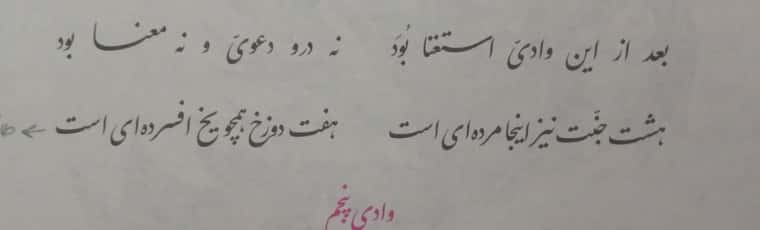 بعد از این وادیّ استغنا بُوَد نه درو دعویّ و نه معنا بود
هشت جنّت نیز اینجا مرده‌ای است هفت دوزخ همچو یخ افسرده‌ای است
وادی پنجم